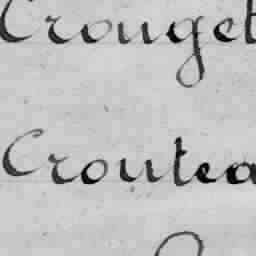 Crouget
Croutea